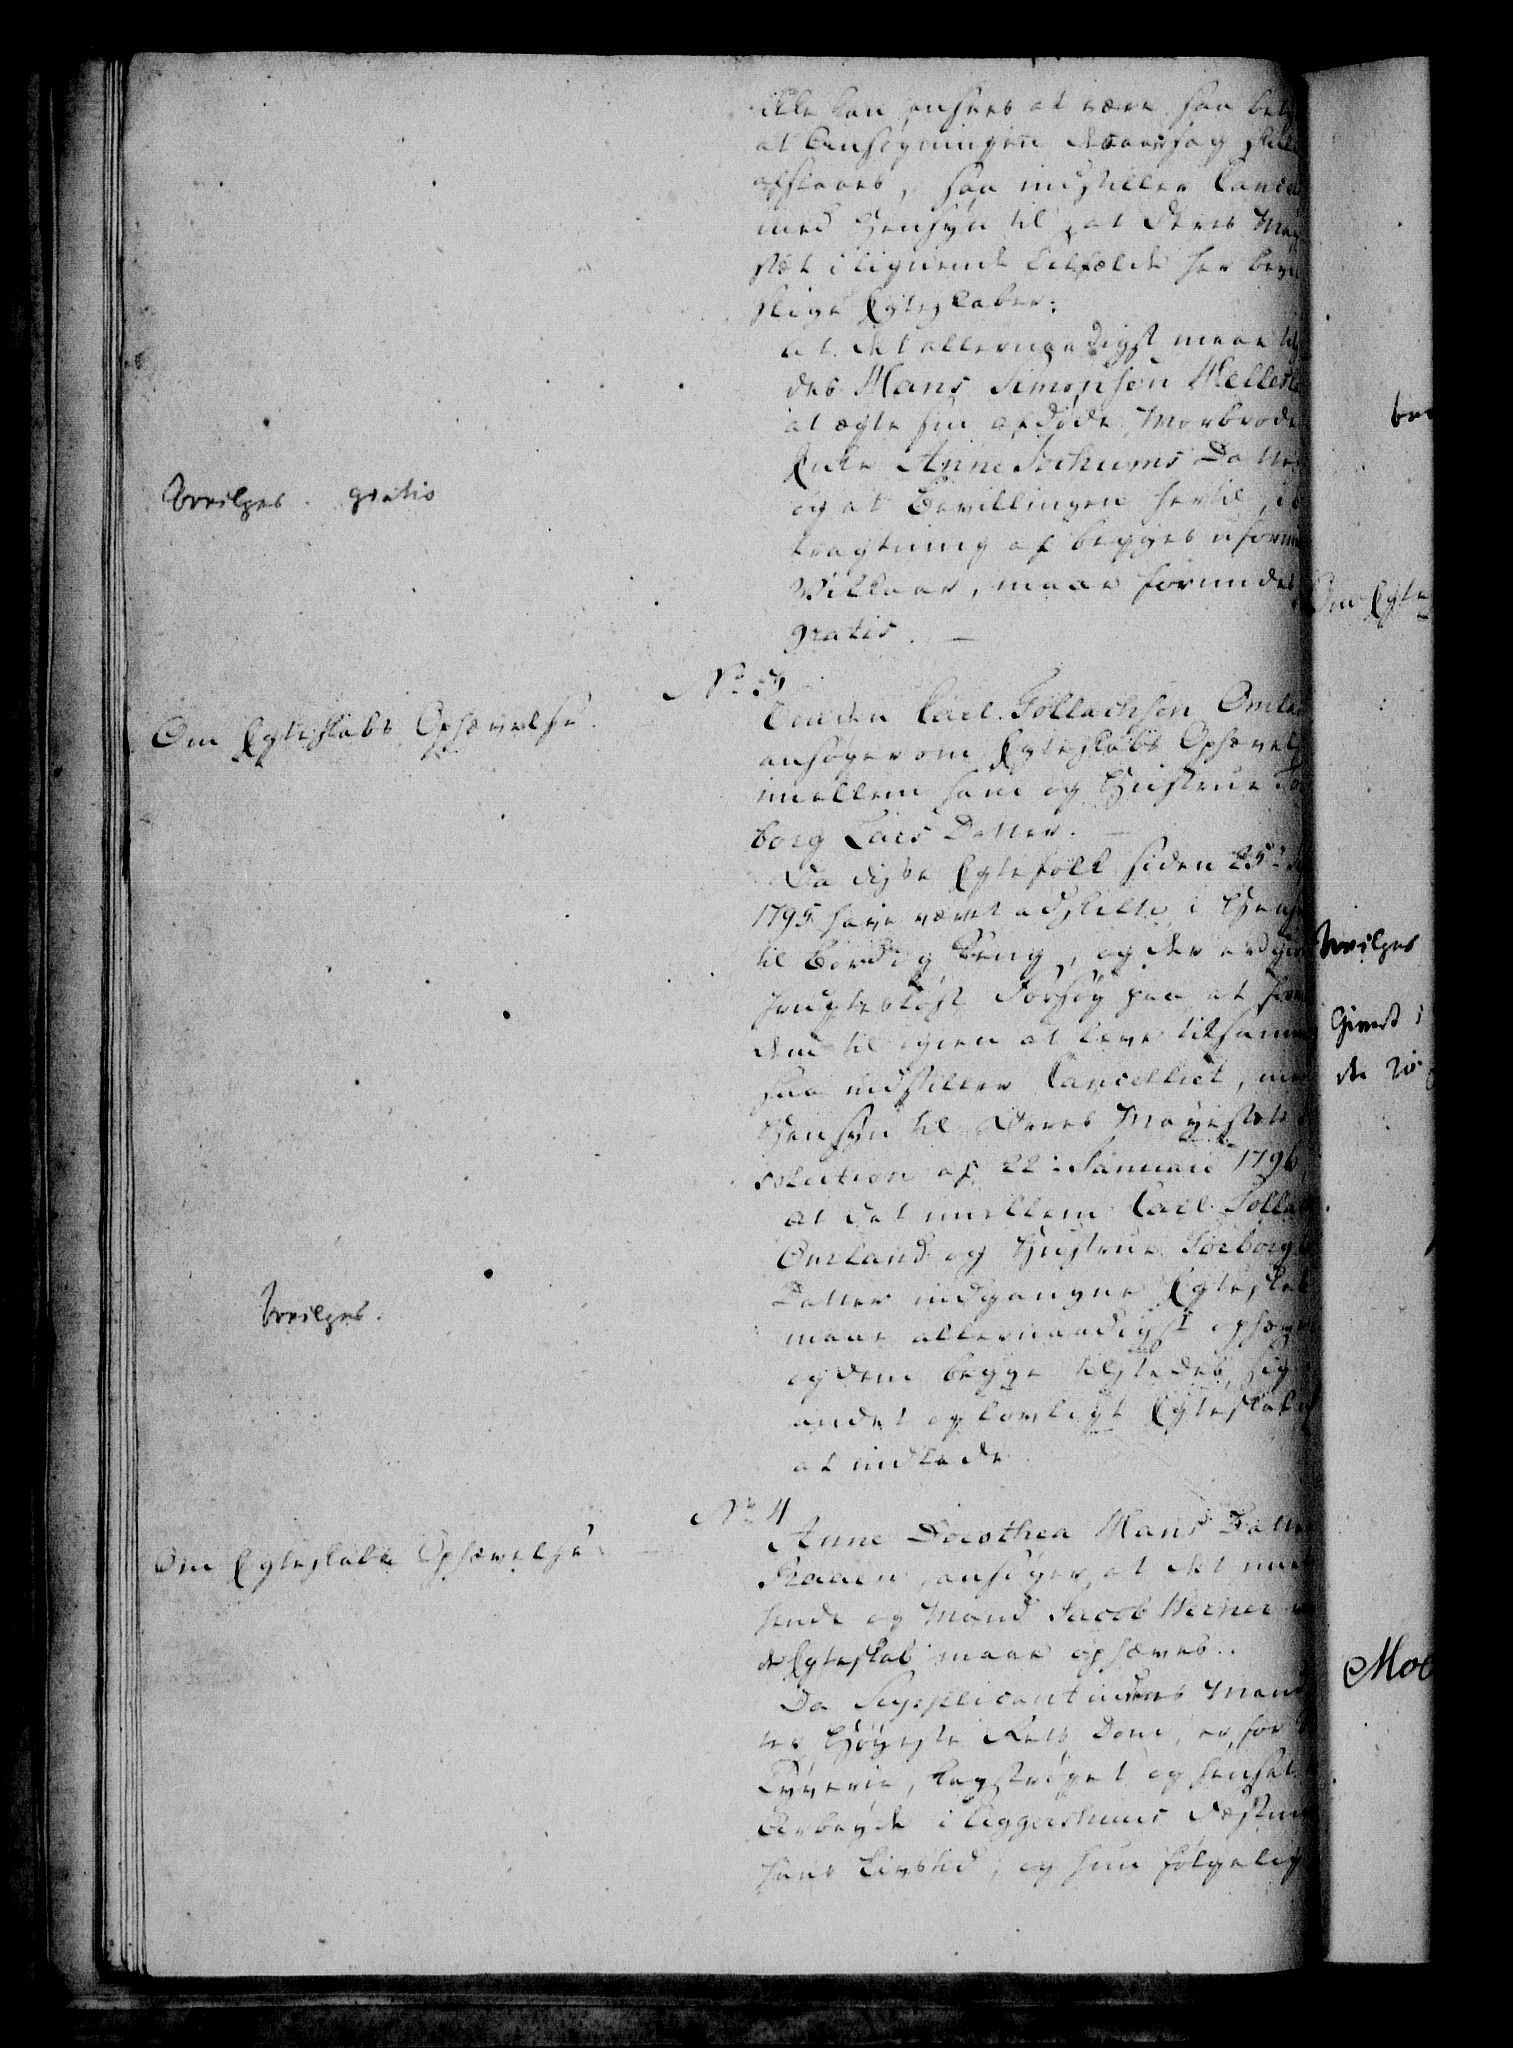 ikke kan ansees at være saa
at Ansøgningen desaarsag
afslaaes, saa indstiller Cancel
med Hensyn til at Deres May
stæt i lignende Tilfælde har
slige Egteskaber:
at det allernaadigst maae
des Hans Simonsen
at ægte sin afdøde Morbrode
Enke Anne Jochums Datter
og at Bevillingen hertil, i
tragtning af begges uform
Vilkaar, maae forundes
gratis. —
bevilges gratis
No 3
Om Egteskabs Ophævelse.
Bonden Carl Tollachsen Omland
ansøger om Egteskabs Ophævel
imellem ham og Hustrue Tor
borg Lars Datter. —
Da disse Egtefolk siden 25de
1795 have været adskilte i Hens
til Bord og Seng, og der er giort
frugtesløst Forsøg paa at
dem til igien at leve tilsammen
saa indstiller Cancelliet, med
Hensyn til Deres Mayestæts
solution af 22: Januarii 1796,
at det imellem Carl Tollach
Omland og Hustrue Torborg
Datter indgangne Egteskab
maae allernaadigst ophæves
og dem begge tilstedes, sig i
andet og lovligt Egteskab
at indlade
bevilges.
No 4
Om Egteskabs Ophævelse. —
Anne Dorothea Hans Datter
ansøger, at det mel
hende og Mand Jacob Werner
de Egteskab maae ophæves.
Da Supplicantindens Mand
ter Høyeste Rets Dom, er for
Tyverie, kagstrøget og hensat
Arbeyde i Aggershuus Fæstning
hans Livstid, og hun følgelig
Om Egte
bevilges
Givet